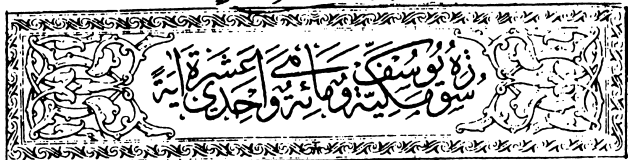 سُورَةُ يُوسُفَ مَكِّيَّةٌ وَهِيَ مِائَةٌ وَإِحْدَى عَشْرَةَ آيَةً